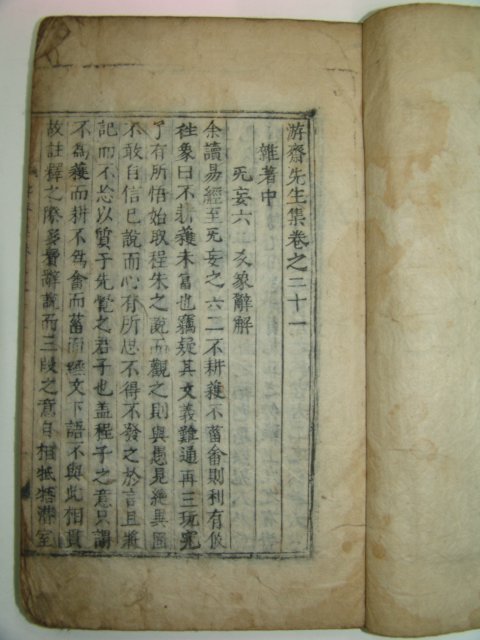 游齋先生集卷之二十一
雜著中
无妄六二爻象辭解
余讀易經至无妄之六二不耕穫不菑畬則利有攸
往象曰不耕穫未富也竊疑其文義難通再三玩究
了有所悟始取程朱之說而觀之則與愚見絶異固
不敢自信已說而心有所思不得不發之於言且將
記而不忘以質于先覺之君子也盖程子之意只謂
不為穫而耕不為畬而菑而經文下語不與此相貫
故註釋之際 辭說而三段之意自相牴牾滯窒